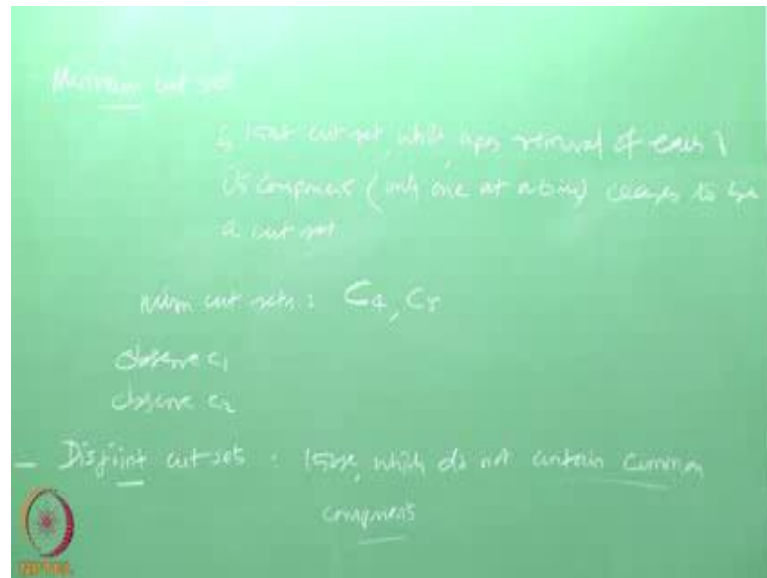 - Minimum cut set
↳ that cut set, which upon removal of each
its component (only one at a time) ceases to be
a cut set
mim cut sets : C4, C5
observe C1
observe C2
- Disjoint cut sets : those, which do not contain common
components
NPTEL